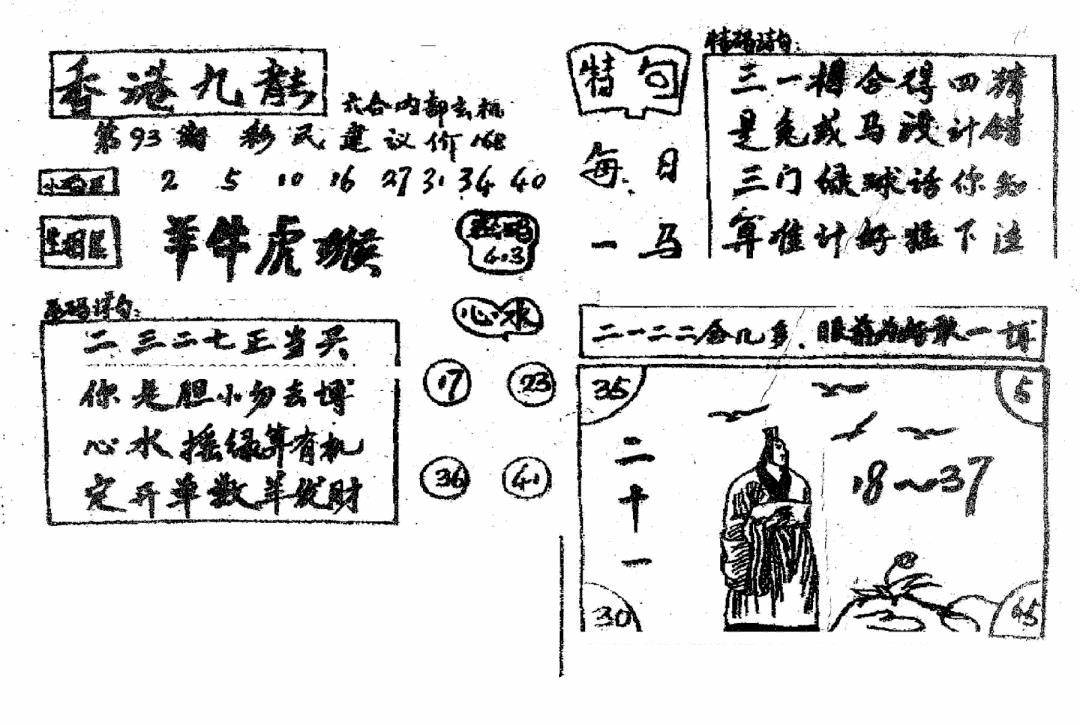 香港九龍
六合内部玄机
第93期 彩民建议价168
小码区 2 5 10 16 27 31 34 40
生肖区 羊牛虎猴
43
玄码诗句:
二三二七正当买
你是胆小勿去博
心水摇绿算有机
定开单数羊发财
心水
17 23
36 41
特句
每日
一马
特码诗句:
三一相合得四猜
是兔或马没计错
三门绿球话你知
算准计好猛下注
二一二二合几多.眼前为好敢一博
35 5
二十一
18~37
30 45